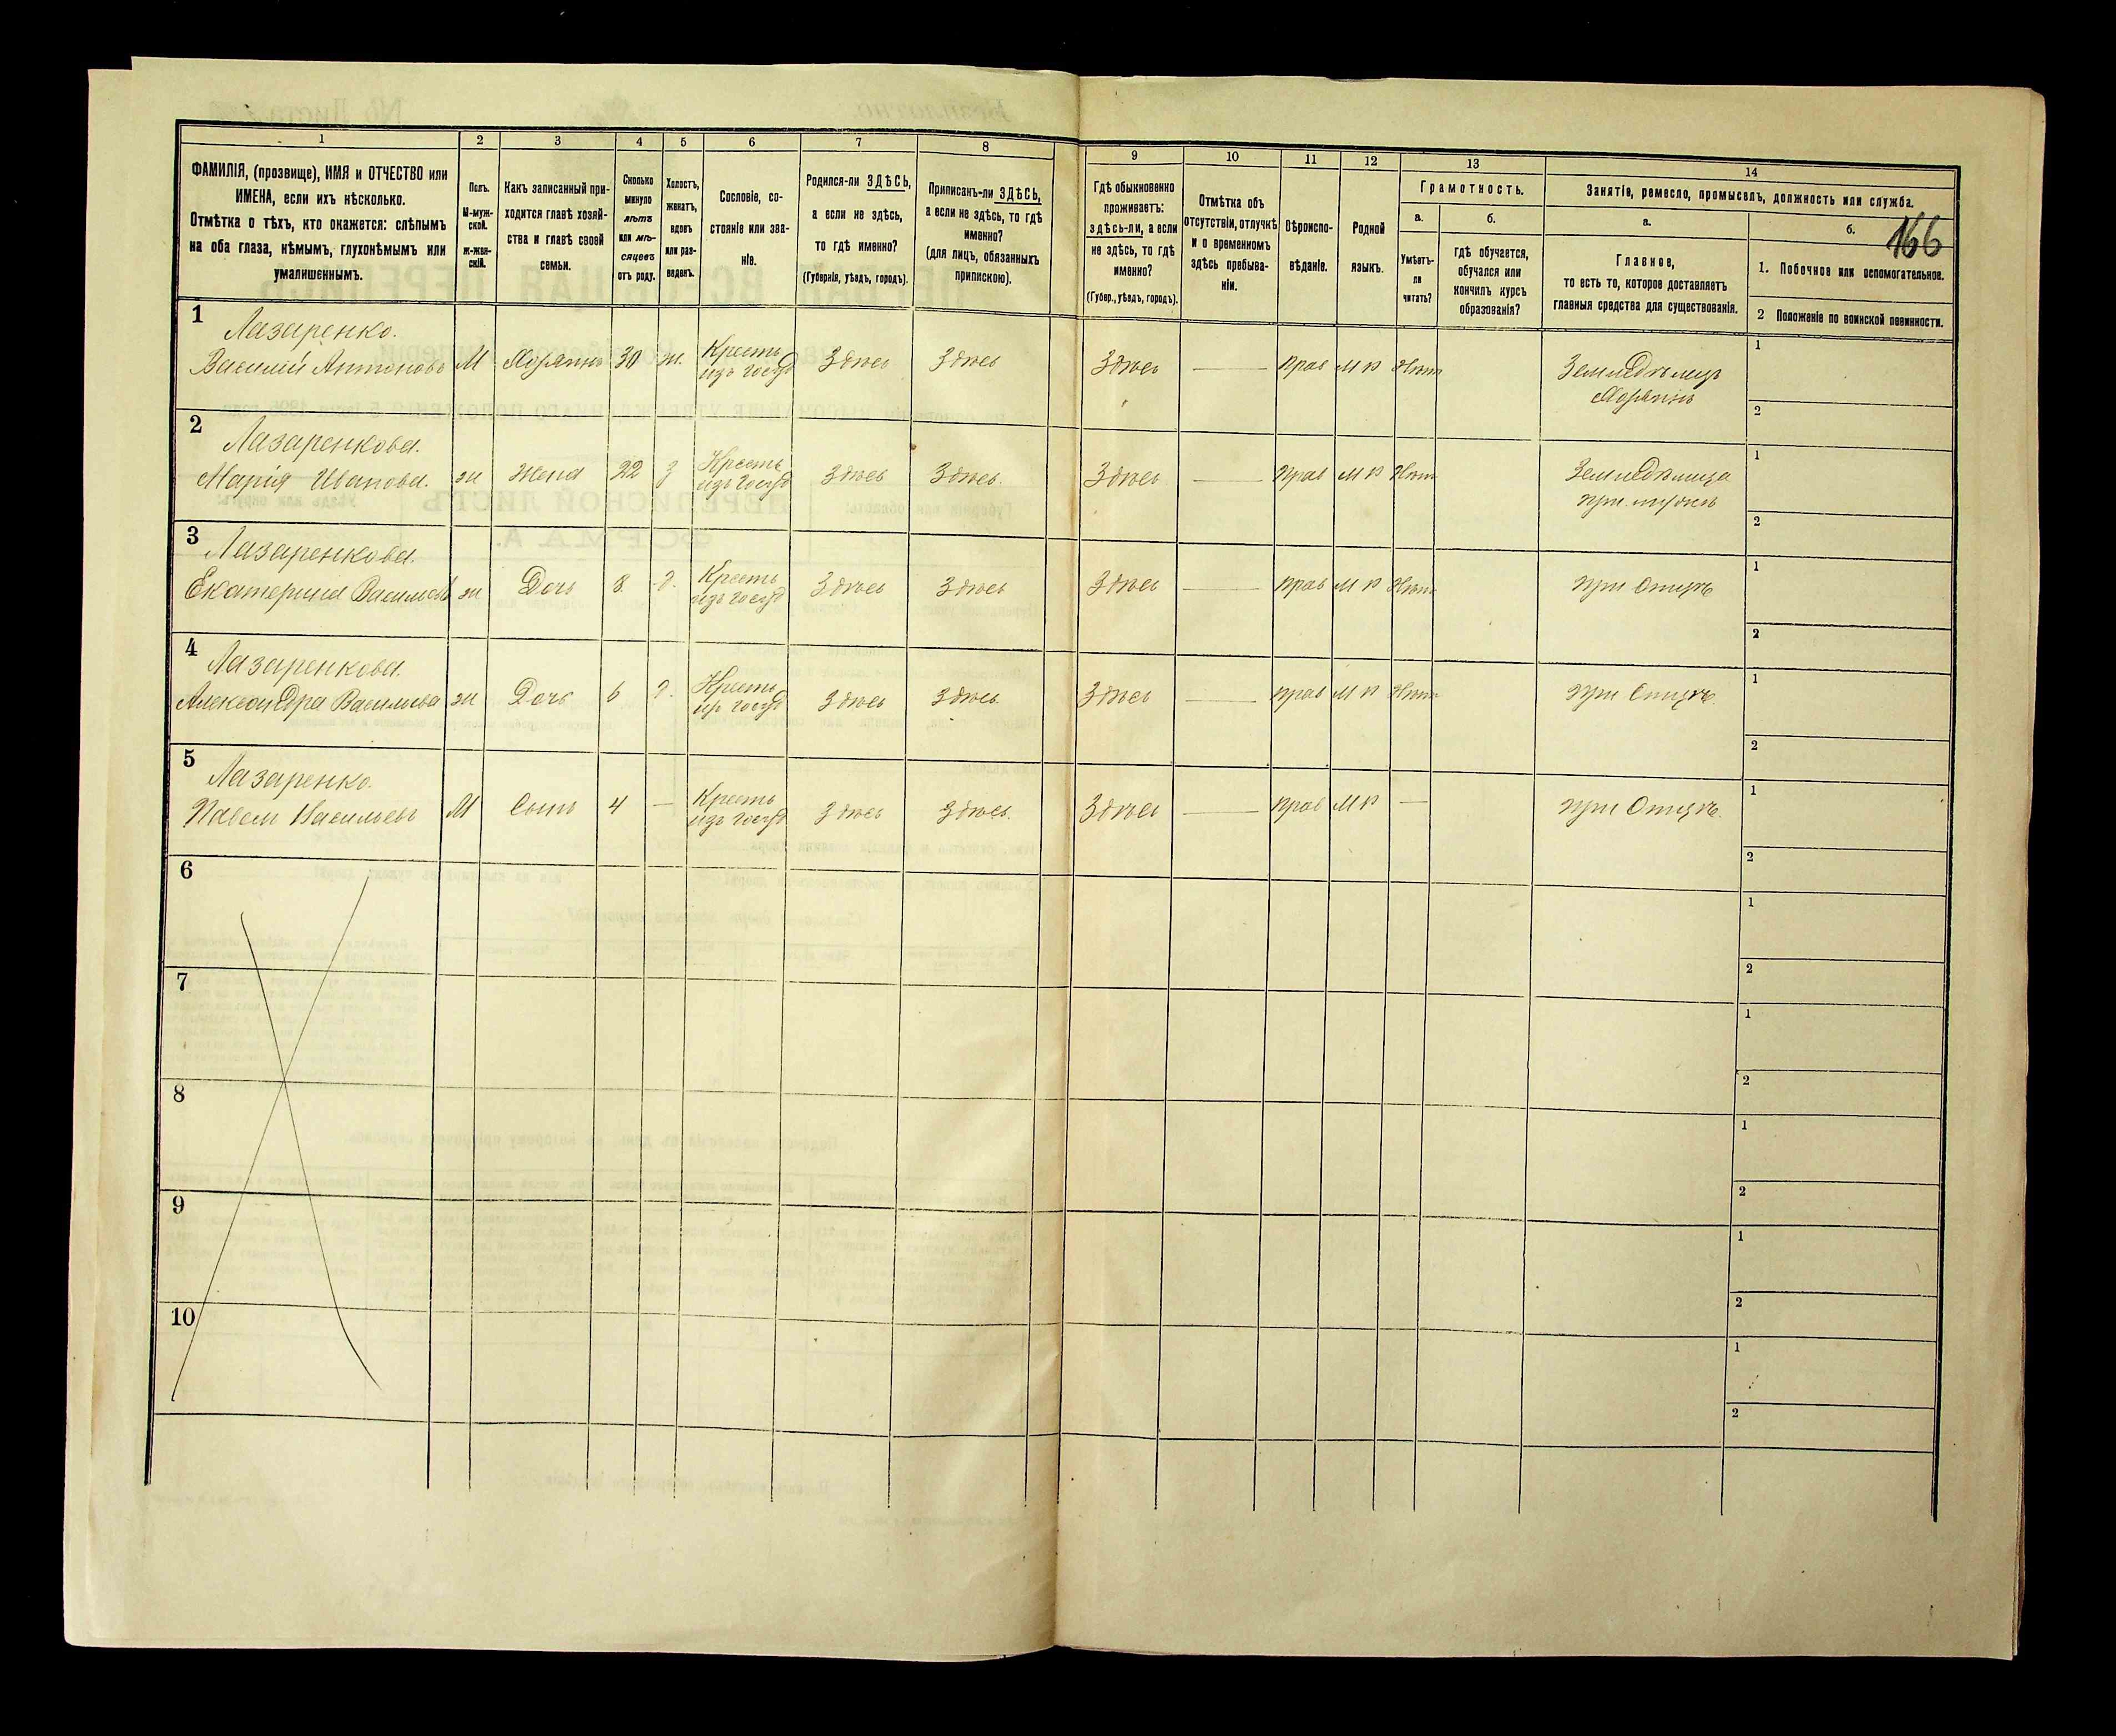 1 2 3 4 5 6 7 8 9 10 11 12 13 14
ФАМИЛІЯ, (прозвище), ИМЯ и ОТЧЕСТВО или
ИМЕНА, если ихъ нѣсколько.
Отмѣтка о тѣхъ, кто окажется: слѣпымъ
на оба глаза, нѣмымъ, глухонѣмымъ или
умалишеннымъ.
Полъ.
М-муж-
ской.
ж-жен-
скій.
Какъ записанный при-
ходится главѣ хозяй-
ства и главѣ своей
семьи.
Сколько
минуло
лѣтъ
или мѣ-
сяцевъ
отъ роду.
Холостъ,
женатъ,
вдовъ
или раз-
веденъ.
Сословіе, со-
стояніе или зва-
ніе.
Родился-ли ЗДѢСЬ,
а если не здѣсь,
то гдѣ именно?
(Губернія, уѣздъ, городъ).
Приписанъ-ли ЗДѢСЬ,
а если не здѣсь, то гдѣ
именно?
(для лицъ, обязанныхъ
припискою).
Гдѣ обыкновенно
проживаетъ:
здѣсь-ли, а если
не здѣсь, то гдѣ
именно?
(Губер., уѣздъ, городъ).
Отмѣтка объ
отсутствіи, отлучкѣ
и о временномъ
здѣсь пребыва-
ніи.
Вѣроиспо-
вѣданіе.
Родной
языкъ.
Грамотность.
а.
Умѣетъ-
ли
читать?
б.
гдѣ обучается,
обучался или
кончилъ курсъ
образованія?
Занятіе, ремесло, промыселъ, должность или служба.
а.
Главное,
то есть то, которое доставляетъ
главныя средства для существованія.
б.
166
1. Побочное или вспомогательное.
2 Положеніе по воинской повинности.
1
Лазаренко.
Василій Антоновъ М Хозяинъ 30 ж. Кресть изъ Госуд Здѣсь Здѣсь Здѣсь — Прав М Р Нѣтъ Земледѣлецъ
Хозяинъ
1
2
2
Лазаренкова.
Марія Иванова. ж Жена 22 З Кресть изъ Госуд Здѣсь Здѣсь. Здѣсь — Прав М Р Нѣтъ Земледѣлица
при мужѣ
1
2
3
Лазаренкова.
Екатерина Васильева ж Дочь 8 д. Кресть изъ Госуд Здѣсь Здѣсь Здѣсь — Прав М Р Нѣтъ при Отцѣ
1
2
4
Лазаренкова.
Александра Васильева ж Дочь 6 д. Кресть изъ Госуд Здѣсь Здѣсь. Здѣсь — Прав М Р Нѣтъ при Отцѣ.
1
2
5
Лазаренко.
Павелъ Васильевъ М Сынъ 4 — Кресть изъ Госуд Здѣсь Здѣсь. Здѣсь — Прав М Р — при Отцѣ.
1
2
6
1
2
7
1
2
8
1
2
9
1
2
10
1
2